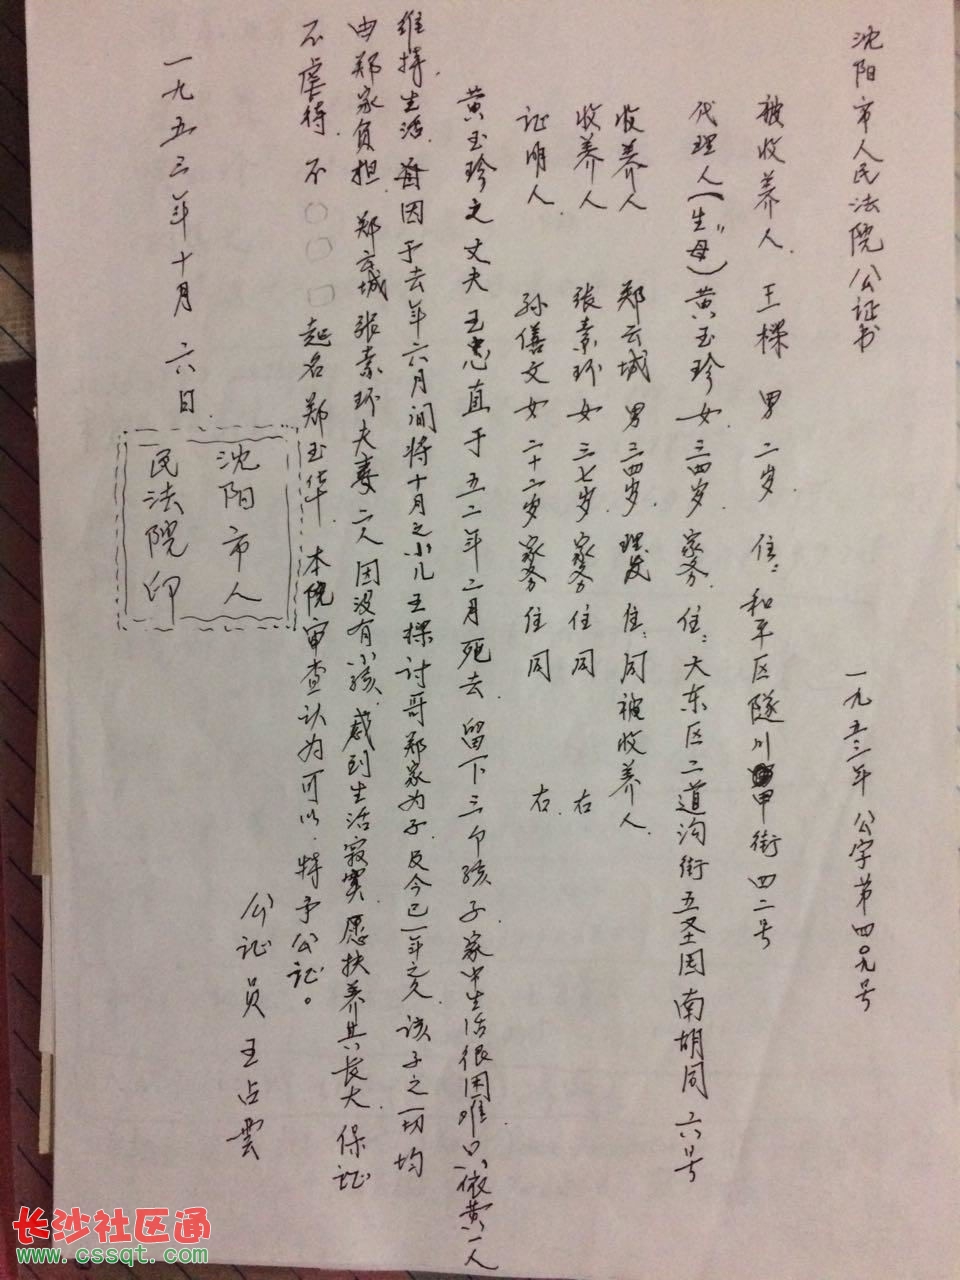 沈阳市人民法院公证书
一九五三年 公字第四0九号
被收养人 王棵 男 二岁 住：和平区隧川街四二号
代理人（生母）黄玉珍 女 三四岁 家务 住：大东区二道沟街五圣园南胡同六号
收养人 郑云城 男 三四岁 理发 住：同被收养人
收养人 张素环 女 三七岁 家务 住同右
证明人 孙僐文 女 二十二岁 家务 住同右
黄玉珍之丈夫王忠直于五二年二月死去 留下三个孩子 家中生活很困难 只依黄一人
维持生活 因于去年六月间将十月之小儿王棵讨哥郑家为子 及今已一年之久 该子之一切均
由郑家负担 郑云城 张素环夫妻二人因没有小孩 感到生活寂寞 愿扶养其长大 保证
不虐待 不〇〇〇 起名郑玉华 本院审查认为可以 特予公证。
公证员 王占雲
一九五三年十月六日
沈阳市人
民法院印
长沙社区通
www.cssqt.com